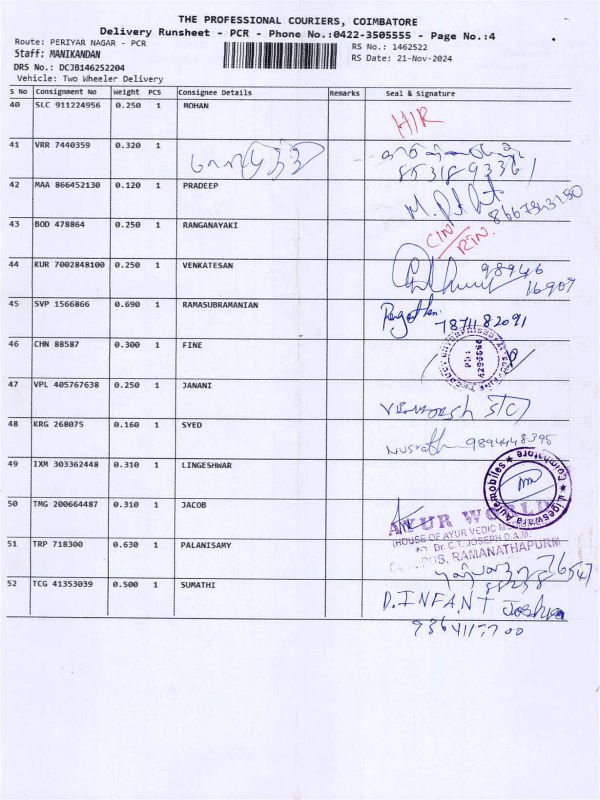 THE PROFESSIONAL COURIERS, COIMBATORE
Delivery Runsheet - PCR - Phone No.:0422-3505555 - Page No.:4
Route: PERIYAR NAGAR - PCR
RS No.: 1462522
Staff: MANIKANDAN
RS Date: 21-Nov-2024
DRS No.: DCJB146252204
Vehicle: Two Wheeler Delivery
S No Consignment No Weight PCS Consignee Details Remarks Seal & Signature
40 SLC 911224956 0.250 1 MOHAN
41 VRR 7440359 0.320 1
42 MAA 866452130 0.120 1 PRADEEP
43 BOD 478864 0.250 1 RANGANAYAKI
CIN
RTN.
44 KUR 7002848100 0.250 1 VENKATESAN
98946
16909
45 SVP 1566866 0.690 1 RAMASUBRAMANIAN
46 CHN 88587 0.300 1 FINE
47 VPL 405767638 0.250 1 JANANI
48 KRG 268075 0.160 1 SYED
Nusrath 9894448395
49 IXM 303362448 0.310 1 LINGESHWAR
Ligeswara Automobiles ★ Coimbatore ★
50 TMG 200664487 0.310 1 JACOB
AYUR WORLD
(HOUSE OF AYUR VEDIC
Dr. C.T. JOSEPH D.A.M.
RAMANATHAPURM
51 TRP 718300 0.630 1 PALANISAMY
76547
52 TCG 41353039 0.500 1 SUMATHI
D. INFANT Joshua